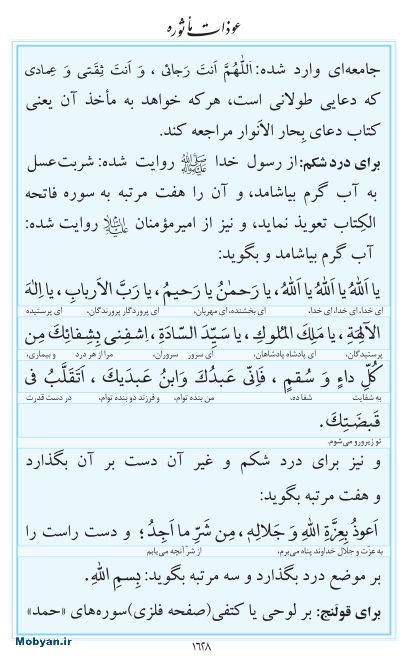 عوذات مأثوره
جامعه‌ای وارد شده: اَللّٰهُمَّ اَنتَ رَجائی ، وَ اَنتَ ثِقَتی وَ عِمادی
که دعایی طولانی است، هرکه خواهد به مأخذ آن یعنی
کتاب دعای بِحار الاَنوار مراجعه کند.
برای درد شکم: از رسول خدا ﷺ روایت شده: شربت عسل
به آب گرم بیاشامد، و آن را هفت مرتبه به سوره فاتحه
الکِتاب تعویذ نماید، و نیز از امیرمؤمنان روایت شده:
آب گرم بیاشامد و بگوید:
یا اَللهُ یا اَللهُ یا اَللهُ، یا رَحمٰنُ یا رَحیمُ، یا رَبَّ الاَربابِ، یا اِلٰهَ
ای خدا، ای خدا، ای خدا، ای بخشنده، ای مهربان، ای پروردگار پرورندگان، ای پرستیده
الآلِهَةِ، یا مَلِکَ المُلوکِ، یا سَیِّدَ السّادَةِ، اِشفِنی بِشِفائِکَ مِن
پرستیدگان، ای پادشاه پادشاهان، ای سرور سروران، مرا از هر درد و بیماری،
کُلِّ داءٍ وَ سُقمٍ، فَاِنّی عَبدُکَ وَابنُ عَبدَیکَ ، اَتَقَلَّبُ فی
به شفایت شفا ده، من بنده توام، و فرزند دو بنده توام، در دست قدرت
قَبضَتِکَ.
تو زیر و رو می‌شوم.
و نیز برای درد شکم و غیر آن دست بر آن بگذارد
و هفت مرتبه بگوید:
اَعوذُ بِعِزَّةِ اللهِ وَ جَلالِهِ، مِن شَرِّ ما اَجِدُ؛ و دست راست را
به عزت و جلال خداوند پناه می‌برم، از شر آنچه می‌یابم
بر موضع درد بگذارد و سه مرتبه بگوید: بِسمِ اللهِ.
برای قولَنج: بر لوحی یا کتفی(صفحه فلزی)سوره‌های «حمد»
۱۶۲۸
Mobyan.ir